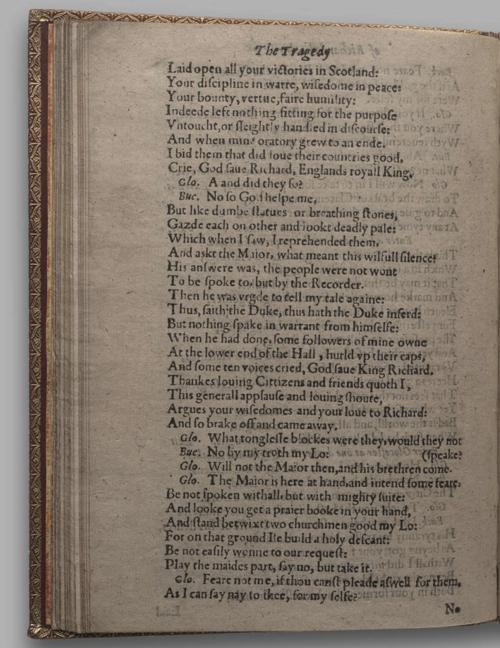 The Tragedy
Laid open all your victories in Scotland:
Your discipline in warre, wisedome in peace:
Your bounty, vertue, faire humility:
Indeede left nothing fitting for the purpose
Vntoucht, or sleightly handled in discourse:
And when mine oratory grew to an ende,
I bid them that did loue their countries good,
Crie, God saue Richard, Englands royall King,
Glo. A and did they so?
Buc. No so God helpe me,
But like dumbe statues or breathing stones,
Gazde each on other and lookt deadly pale:
Which when I saw, I reprehended them,
And askt the Maior, what meant this wilfull silence?
His answere was, the people were not wont
To be spoke to, but by the Recorder.
Then he was vrgde to tell my tale againe:
Thus, saith the Duke, thus hath the Duke inferd:
But nothing spake in warrant from himselfe:
When he had done, some followers of mine owne
At the lower end of the Hall, hurld vp their caps,
And some ten voices cried, God saue King Richard.
Thankes louing Cittizens and friends quoth I,
This generall applause and louing shoute,
Argues your wisedomes and your loue to Richard:
And so brake off and came away.
Glo. What tonglesse blockes were they, would they not
Buc. No by my troth my Lo: (speake?
Glo. Will not the Maior then, and his brethren come.
Glo. The Maior is here at hand, and intend some feare.
Be not spoken withall, but with mighty suite:
And looke you get a praier booke in your hand,
And stand betwixt two churchmen good my Lo:
For on that ground Ile build a holy descant:
Be not easily wonne to our request:
Play the maides part, say no, but take it.
Glo. Feare not me, if thou canst pleade aswell for them,
As I can say nay to thee, for my selfe?
No